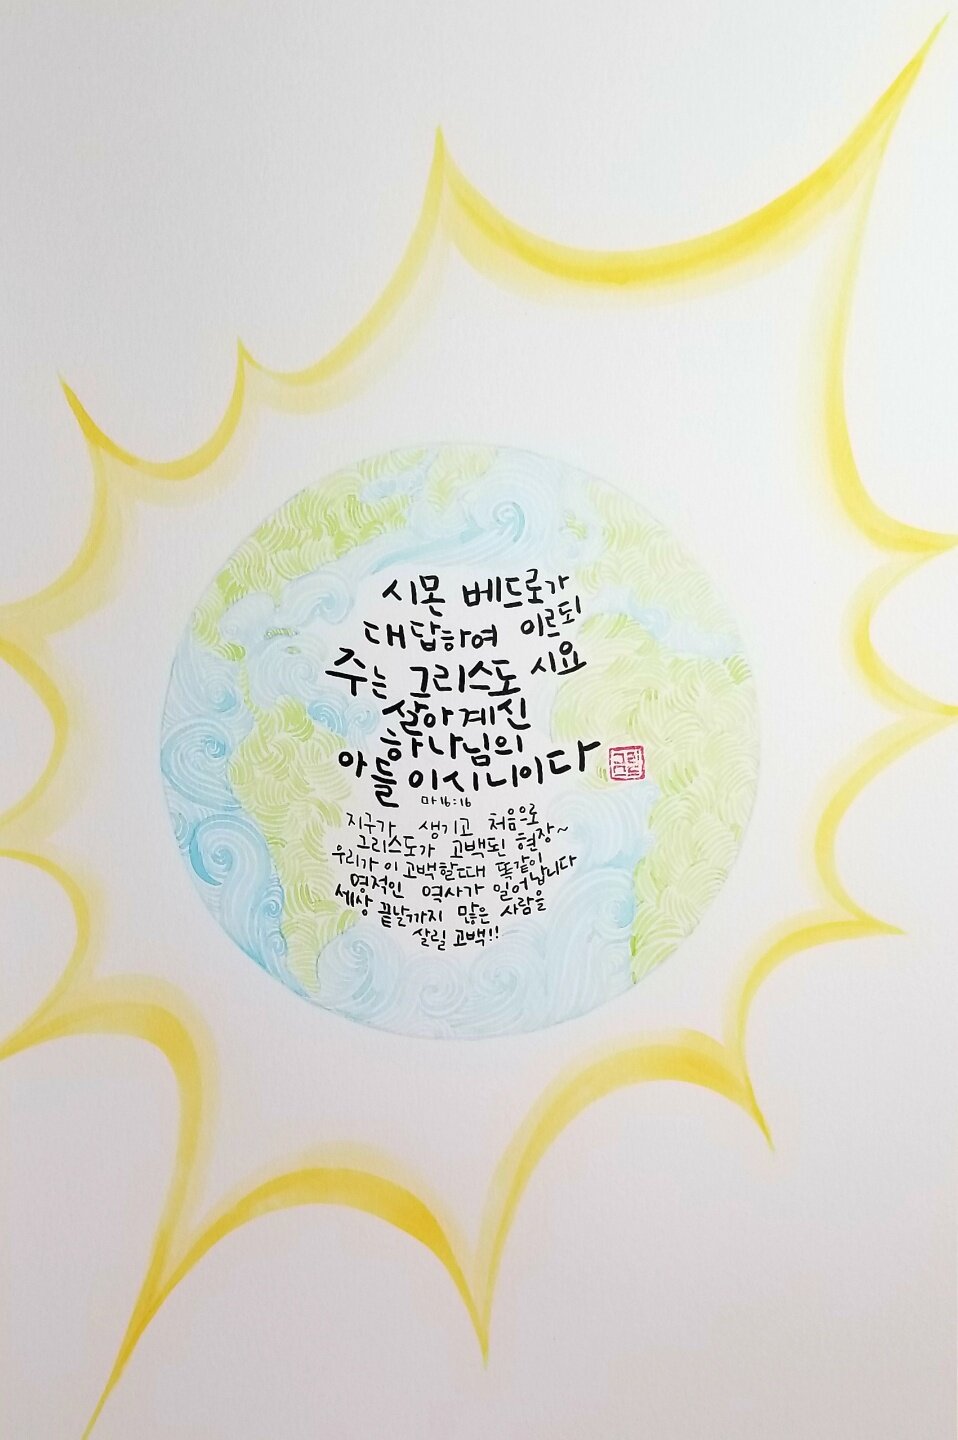 시몬 베드로가
대답하여 이르되
주는 그리스도 시요
살아계신
하나님의
아들이시니이다
마16:16
지구가 생기고 처음으로
그리스도가 고백된 현장~
우리가 이 고백할때 똑같이
영적인 역사가 일어납니다
세상 끝날까지 많은 사람을
살릴 고백!!